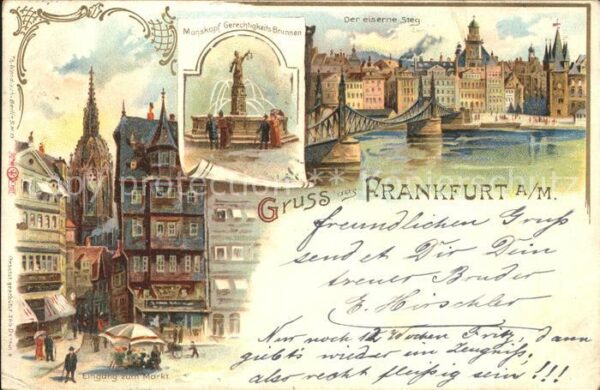 Manskopf Gerechtigkeits Brunnen
Der eiserne Steg
Gruss aus FRANKFURT A/M.
freundlichen Gruß
sendet Dir Dein
treuer Bruder
E. Hirschler
Nur noch 12 Wochen Fritz, dann
giebts wieder ein Zeugniß,
also recht fleißig sein!!!
Eingang zum Markt
copyright protection Kopierschutz